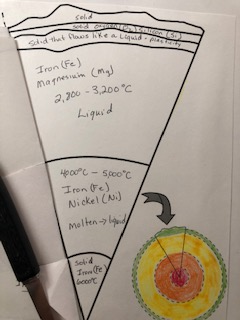 solid
solid oxygen (O) silicon (Si)
Solid that flows like a Liquid - plasticity
Iron (Fe)
Magnesium (Mg)
2,200 - 3,200°C
Liquid
4000°C - 5,000°C
Iron (Fe)
Nickel (Ni)
Molten → liquid
Solid
Iron (Fe)
6000°C